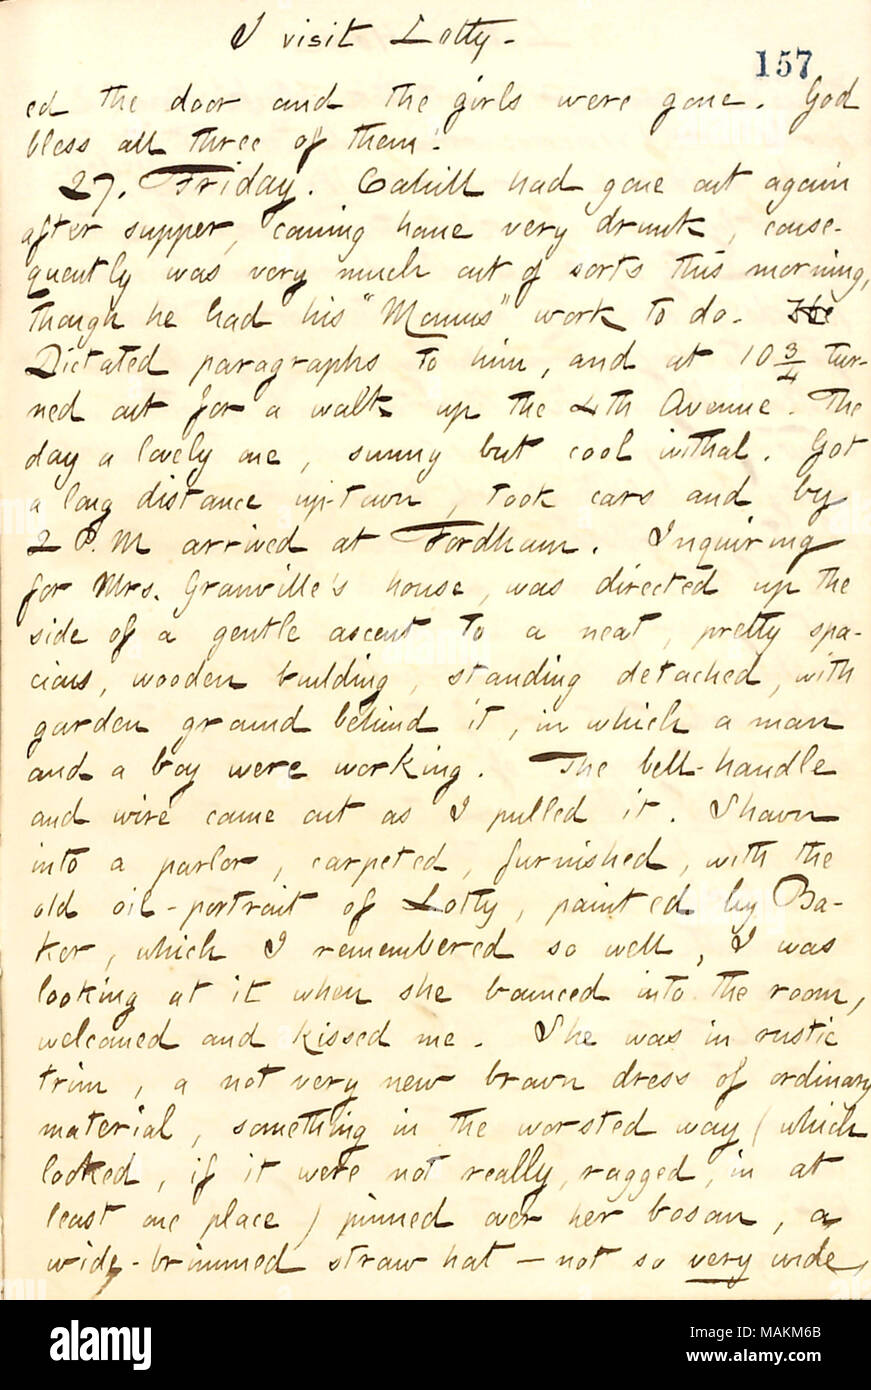 I visit Lotty.
157
ed the door and the girls were gone. God
bless all three of them!
27. Friday. Cahill had gone out again
after supper, coming home very drunk, conse-
quently was very much out of sorts this morning,
though he had his "Momus" work to do. He
Dictated paragraphs to him, and at 10 3/4 tur-
ned out for a walk up the 4th Avenue. The
day a lovely one, sunny but cool withal. Got
a long distance up-town, took cars and by
2 P.M arrived at Fordham. Inquiring
for Mrs. Granville's house, was directed up the
side of a gentle ascent to a neat, pretty spa-
cious, wooden building, standing detached, with
garden ground behind it, in which a man
and a boy were working. The bell-handle
and wire came out as I pulled it. Shown
into a parlor, carpeted, furnished, with the
old oil-portrait of Lotty, painted by Ba-
ker, which I remembered so well, I was
looking at it when she bounced into the room,
welcomed and kissed me. She was in rustic
trim, a not very new brown dress of ordinary
material, something in the worsted way (which
looked, if it were not really, ragged, in at
least one place) pinned over her bosom, a
wide-brimmed straw hat — not so very wide,
alamy
Image ID: MAKM6B
www.alamy.com